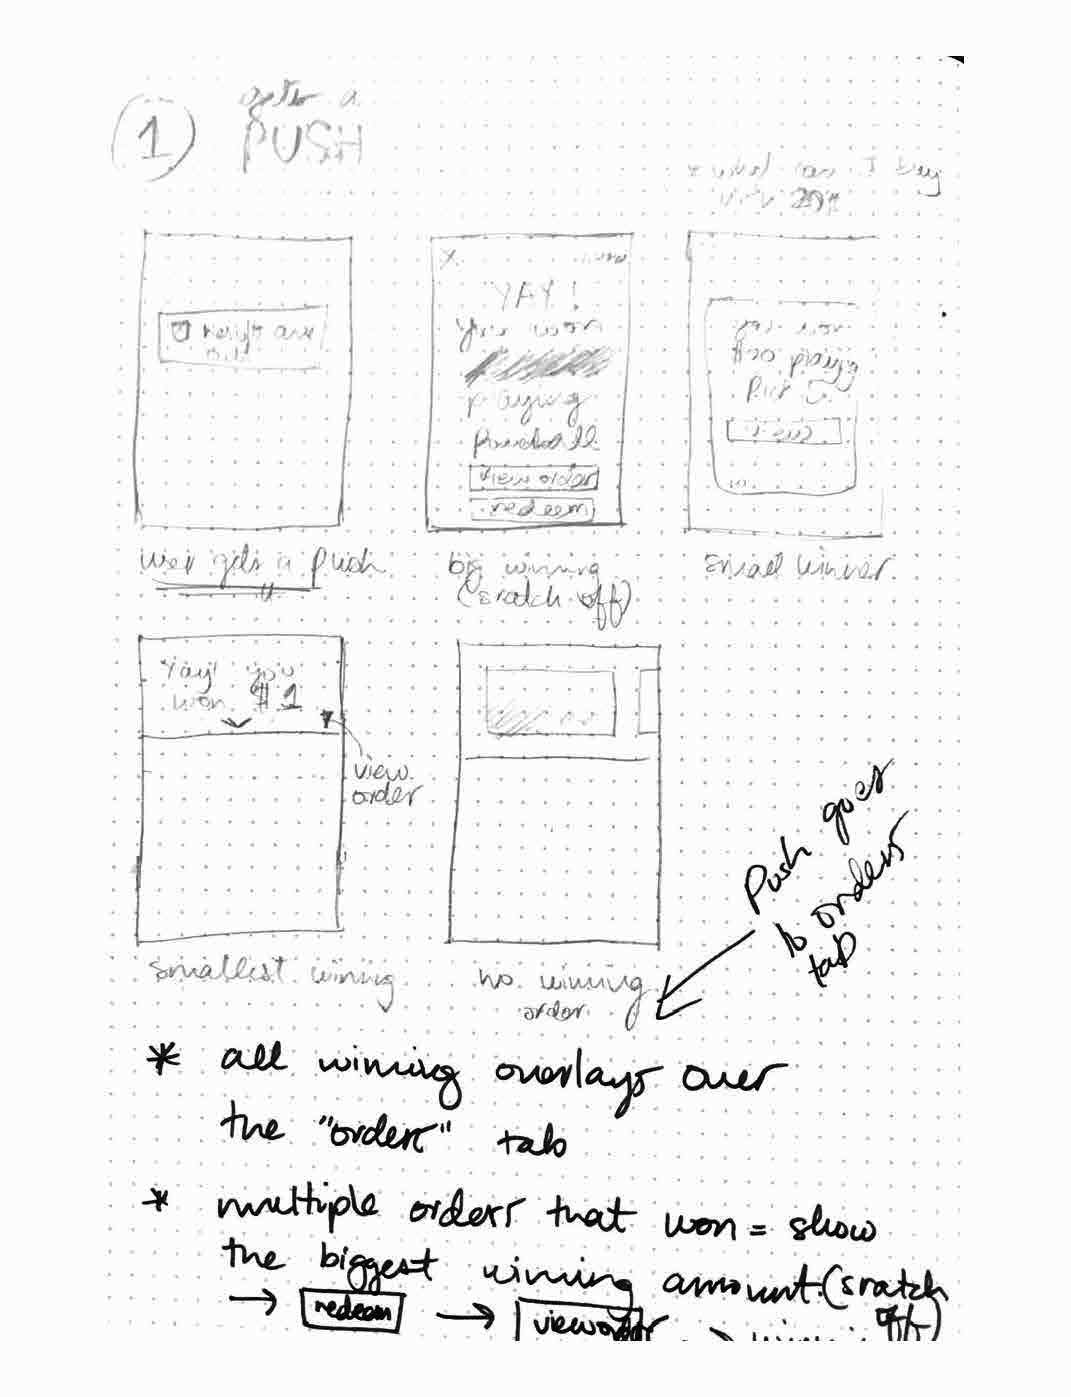 1
gets a
PUSH
what can I buy
with
! YAY
you won
playing
Powerball
view order
redeem
you won
for playing
Pick
user gets a push
big winning
(sratch off)
small winner
Yay! you
won $1
view
order
smallest winning
no winning
order
Push goes
to orders
tab
* all winning overlays over
the "orders" tab
* multiple orders that won = show
the biggest winning amount. (sratch
off)
→ redeem → view order →